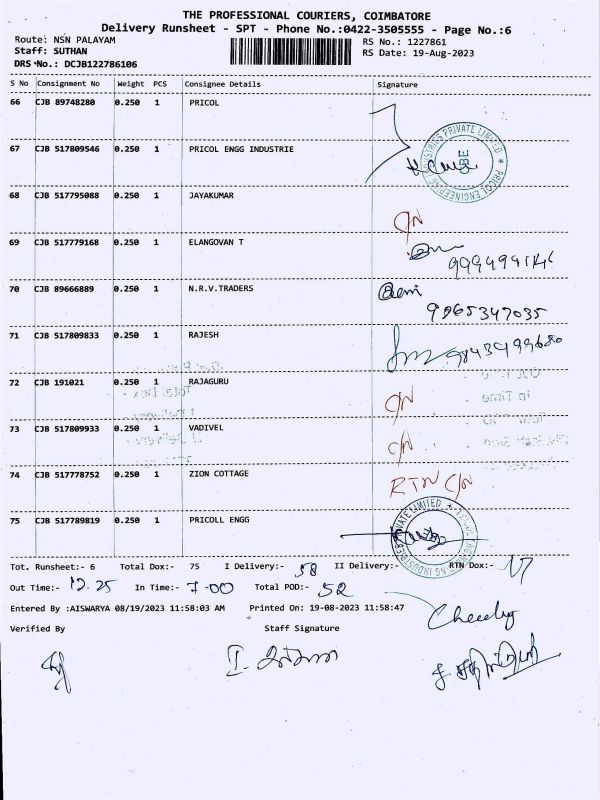 THE PROFESSIONAL COURIERS, COIMBATORE
Delivery Runsheet - SPT - Phone No.:0422-3505555 - Page No.:6
Route: NSN PALAYAM RS No.: 1227861
Staff: SUTHAN RS Date: 19-Aug-2023
DRS No.: DCJB122786106
S No Consignment No Weight PCS Consignee Details Signature
66 CJB 89748280 0.250 1 PRICOL
67 CJB 517809546 0.250 1 PRICOL ENGG INDUSTRIE
68 CJB 517795088 0.250 1 JAYAKUMAR C/N
69 CJB 517779168 0.250 1 ELANGOVAN T
70 CJB 89666889 0.250 1 N.R.V.TRADERS
9965347035
71 CJB 517809833 0.250 1 RAJESH
72 CJB 191021 0.250 1 RAJAGURU C/N
73 CJB 517809933 0.250 1 VADIVEL C/N
74 CJB 517778752 0.250 1 ZION COTTAGE RTN C/N
75 CJB 517789819 0.250 1 PRICOLL ENGG
Tot. Runsheet:- 6 Total Dox:- 75 I Delivery:- 58 II Delivery:- RTN Dox:- 17
Out Time:- 12.25 In Time:- 7-00 Total POD:- 52
Entered By :AISWARYA 08/19/2023 11:58:03 AM Printed On: 19-08-2023 11:58:47
Verified By Staff Signature